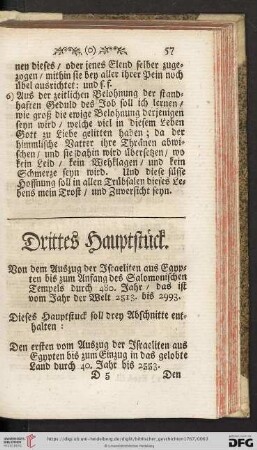 (o) 57
nen dieses / oder jenes Elend selber zuge-
zogen / mithin sie bey aller ihrer Pein noch
übel ausrichtet: und s.f.
6) Aus der zeitlichen Belohnung der stand-
hafften Geduld des Job soll ich lernen /
wie groß die ewige Belohnung derjenigen
seyn wird / welche viel in diesem Leben
Gott zu Liebe gelitten haben; da der
himmlische Vatter ihre Thränen abwi-
schen / und sie dahin wird übersetzen / wo
kein Leid / kein Wehklagen / und kein
Schmerze seyn wird. Und diese süsse
Hoffnung soll in allen Trübsalen dieses Le-
bens mein Trost / und Zuversicht seyn.
Drittes Hauptstuck.
Von dem Auszug der Israeliten aus Egyp-
ten bis zum Anfang des Salomonischen
Tempels durch 480. Jahr / das ist
vom Jahr der Welt 2513. bis 2993.
Dieses Hauptstuck soll drey Abschnitte ent-
halten:
Den ersten vom Auszug der Israeliten aus
Egypten bis zum Einzug in das gelobte
Land durch 40. Jahr bis 2553.
D 5 Den
UNIVERSITÄTS-BIBLIOTHEK HEIDELBERG
Gefördert durch
DFG